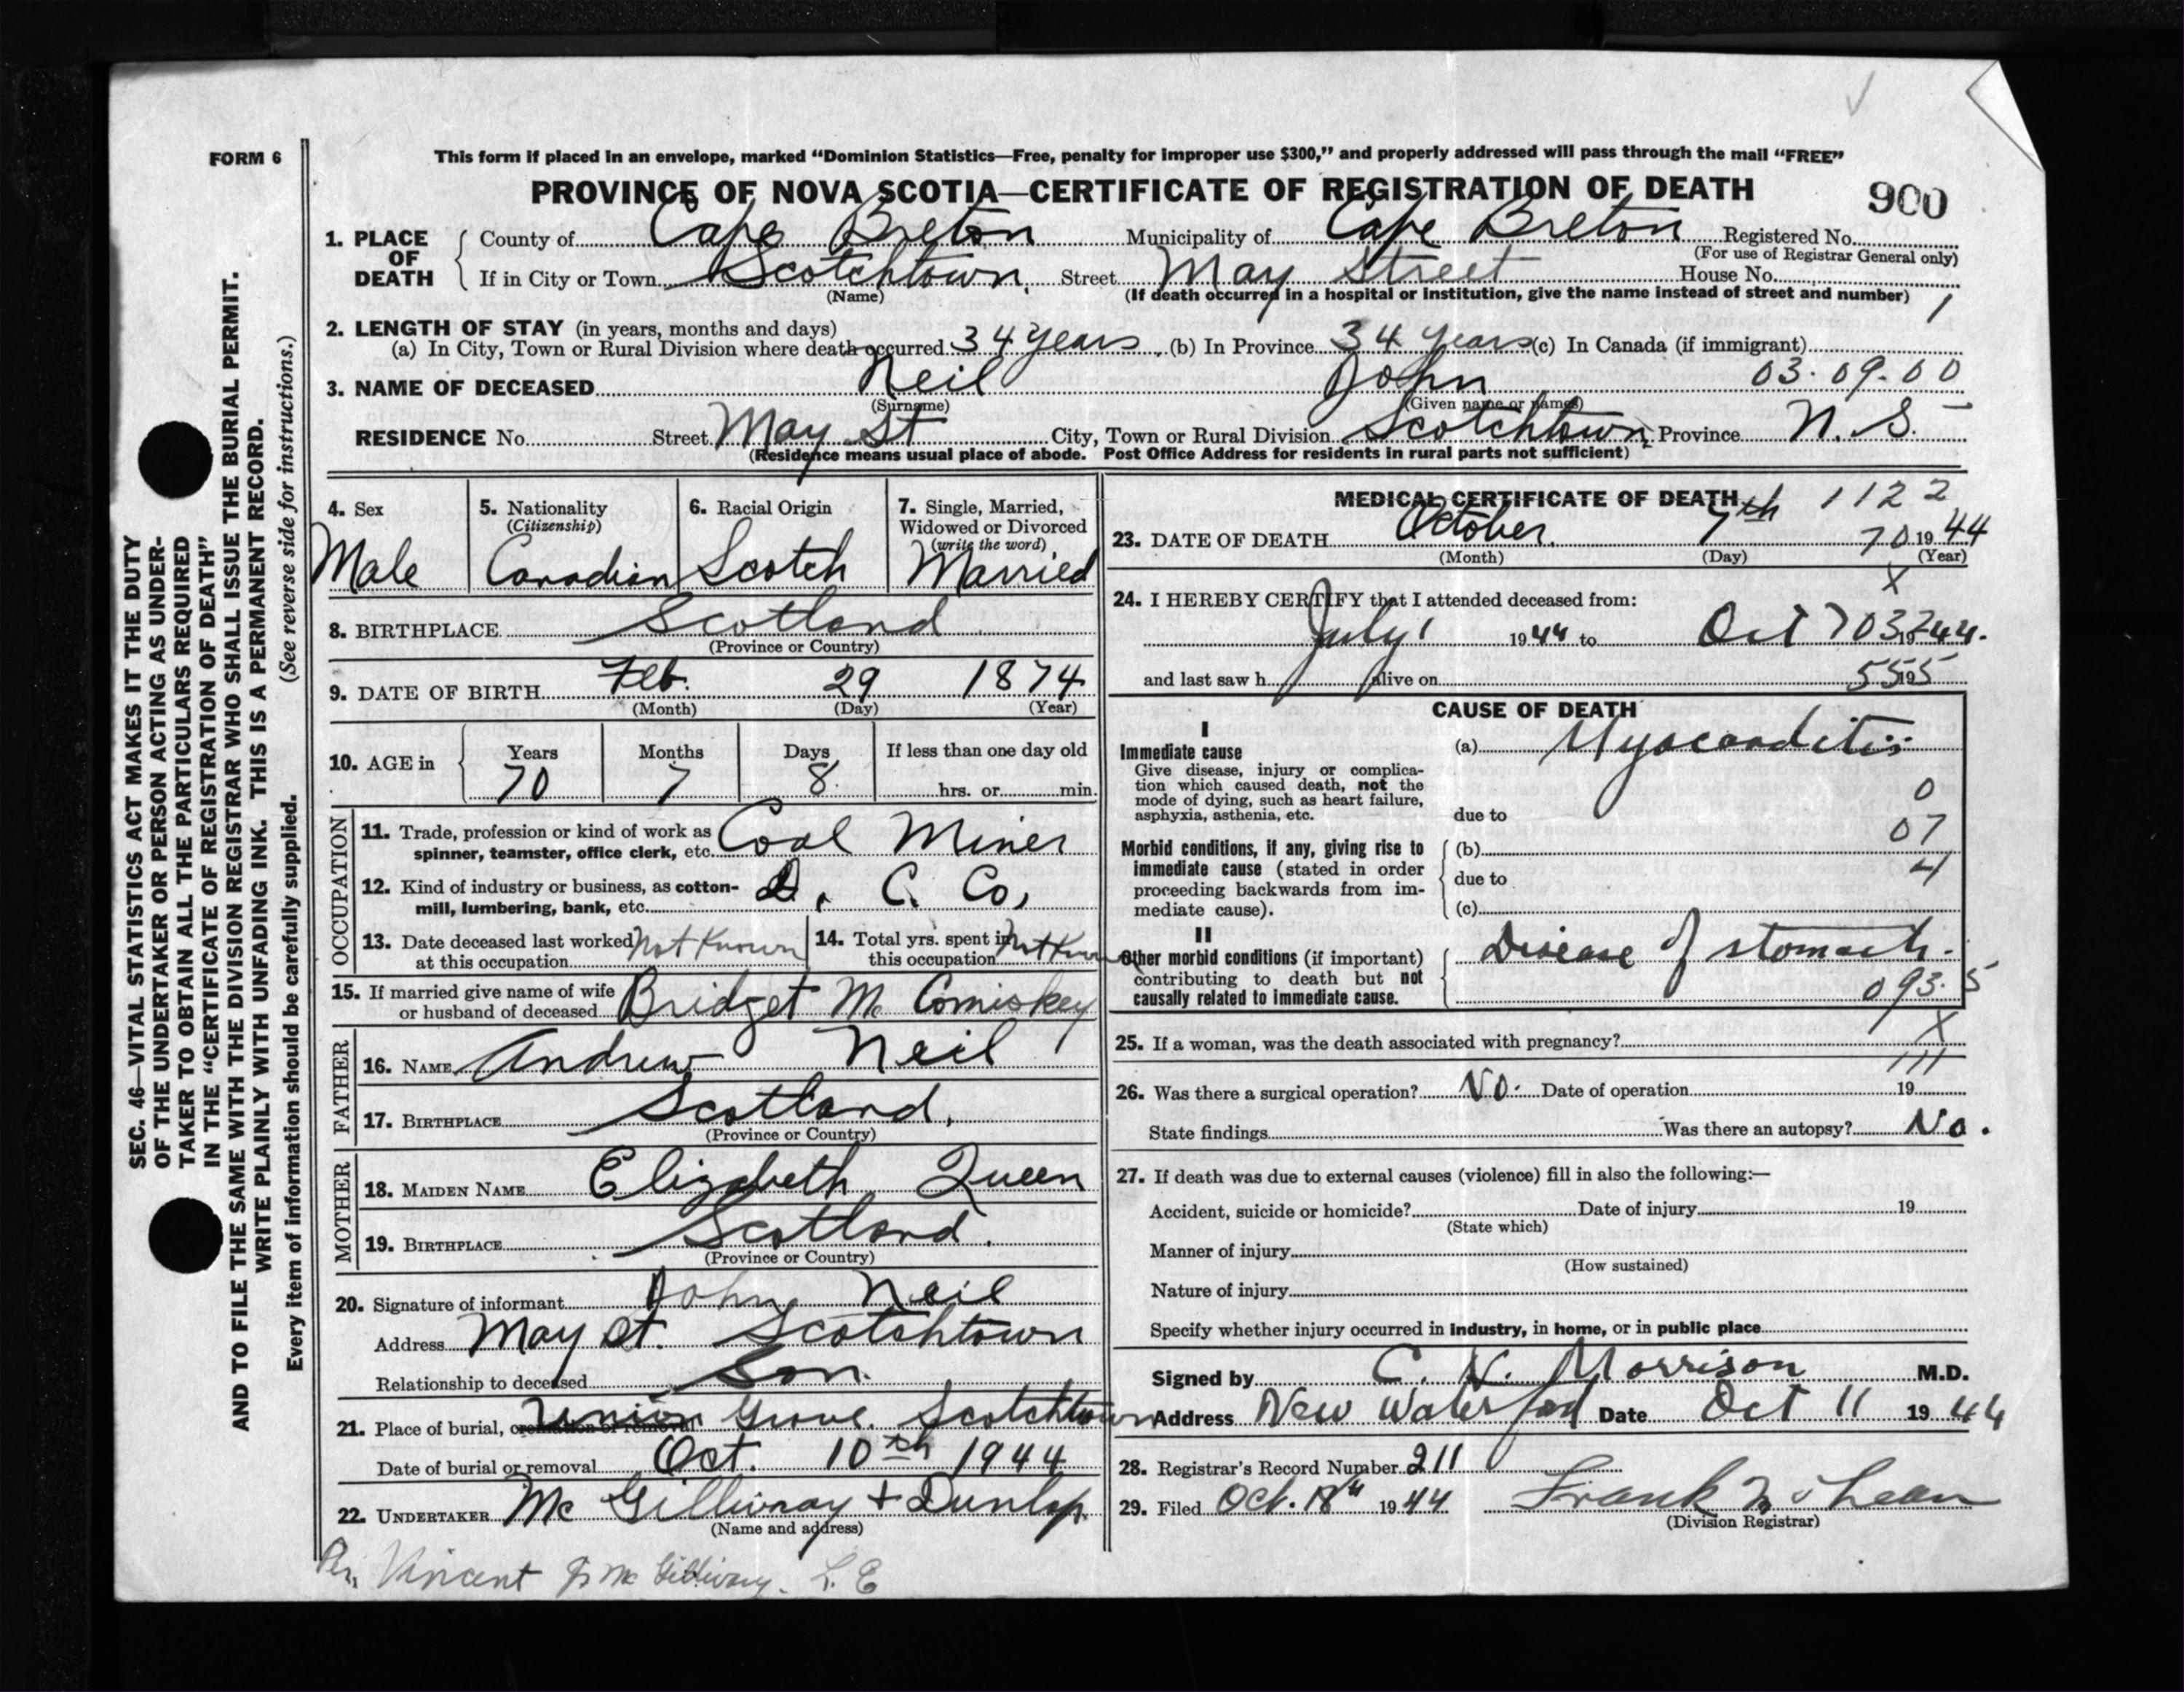 FORM 6
This form if placed in an envelope, marked “Dominion Statistics—Free, penalty for improper use $300,” and properly addressed will pass through the mail “FREE”
PROVINCE OF NOVA SCOTIA—CERTIFICATE OF REGISTRATION OF DEATH
900
1. PLACE OF DEATH
County of Cape Breton Municipality of Cape Breton Registered No.
(For use of Registrar General only)
If in City or Town Scotchtown. Street May Street House No.
(Name) (If death occurred in a hospital or institution, give the name instead of street and number) 1
2. LENGTH OF STAY (in years, months and days)
(a) In City, Town or Rural Division where death occurred 34 years (b) In Province 34 years (c) In Canada (if immigrant)
3. NAME OF DECEASED Neil John 03.09.00
(Surname) (Given name or names)
RESIDENCE No. Street May St City, Town or Rural Division Scotchtown Province N.S.
(Residence means usual place of abode. Post Office Address for residents in rural parts not sufficient)
4. Sex
Male
5. Nationality
(Citizenship)
Canadian
6. Racial Origin
Scotch
7. Single, Married,
Widowed or Divorced
(write the word)
Married
8. BIRTHPLACE Scotland
(Province or Country)
9. DATE OF BIRTH Feb. 29 1874
(Month) (Day) (Year)
10. AGE in Years Months Days If less than one day old
70 7 8 hrs. or min.
OCCUPATION
11. Trade, profession or kind of work as
spinner, teamster, office clerk, etc. Coal Miner
12. Kind of industry or business, as cotton-
mill, lumbering, bank, etc. D. C. Co.
13. Date deceased last worked
at this occupation Not Known
14. Total yrs. spent in
this occupation Not Known
15. If married give name of wife
or husband of deceased Bridget Mc Comiskey
FATHER
16. NAME Andrew Neil
17. BIRTHPLACE Scotland.
(Province or Country)
MOTHER
18. MAIDEN NAME Elizabeth Queen
19. BIRTHPLACE Scotland.
(Province or Country)
20. Signature of informant John Neil
Address May St. Scotchtown
Relationship to deceased Son.
21. Place of burial, cremation or removal Union Grove. Scotchtown
Date of burial or removal Oct. 10th 1944
22. UNDERTAKER Mc Gillivray + Dunlap.
(Name and address)
Per, Vincent J. Mc Gillivray. L. E
MEDICAL CERTIFICATE OF DEATH 1122
23. DATE OF DEATH October 7th 70 1944
(Month) (Day) (Year)
X
24. I HEREBY CERTIFY that I attended deceased from:
July 1 1944 to Oct 7 032 1944.
and last saw h alive on 555 19
CAUSE OF DEATH
I
Immediate cause
Give disease, injury or complica-
tion which caused death, not the
mode of dying, such as heart failure,
asphyxia, asthenia, etc.
(a) Myocarditis
0
due to
07
Morbid conditions, if any, giving rise to
immediate cause (stated in order
proceeding backwards from im-
mediate cause).
(b)
4
due to
(c)
II
Other morbid conditions (if important)
contributing to death but not
causally related to immediate cause.
Disease of stomach.
093.5
25. If a woman, was the death associated with pregnancy? X
111
26. Was there a surgical operation? No. Date of operation 19
State findings Was there an autopsy? No.
27. If death was due to external causes (violence) fill in also the following:—
Accident, suicide or homicide? Date of injury 19
(State which)
Manner of injury
(How sustained)
Nature of injury
Specify whether injury occurred in industry, in home, or in public place
Signed by C. N. Morrison M.D.
Address New Waterford Date Oct 11 1944
28. Registrar's Record Number 211
29. Filed Oct. 18th 1944 Frank McLean
(Division Registrar)
SEC. 46—VITAL STATISTICS ACT MAKES IT THE DUTY
OF THE UNDERTAKER OR PERSON ACTING AS UNDER-
TAKER TO OBTAIN ALL THE PARTICULARS REQUIRED
IN THE “CERTIFICATE OF REGISTRATION OF DEATH”
AND TO FILE THE SAME WITH THE DIVISION REGISTRAR WHO SHALL ISSUE THE BURIAL PERMIT.
WRITE PLAINLY WITH UNFADING INK. THIS IS A PERMANENT RECORD.
Every item of information should be carefully supplied. (See reverse side for instructions.)